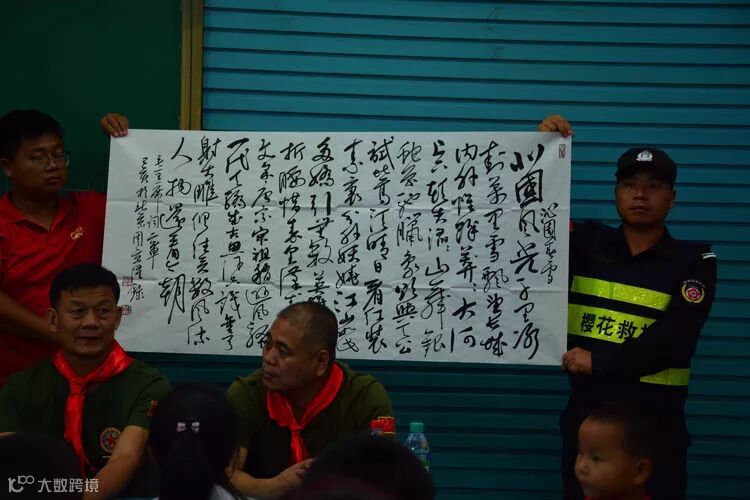 沁园春雪
北國風光千里冰
封萬里雪飘望长城
内外惟馀莽莽大河
上下顿失滔滔山舞银
蛇原驰腊象欲与天公
试比高须晴日看红装
素裹分外妖娆江山如
多娇引无数英雄
折腰惜秦皇汉武
文采唐宗宋祖稍逊风骚
一代天骄成吉思汗只识弯弓
射大雕俱往矣数风流
人物還看今朝
毛主席词一章
己亥於北京
樱花救援
大数跨境